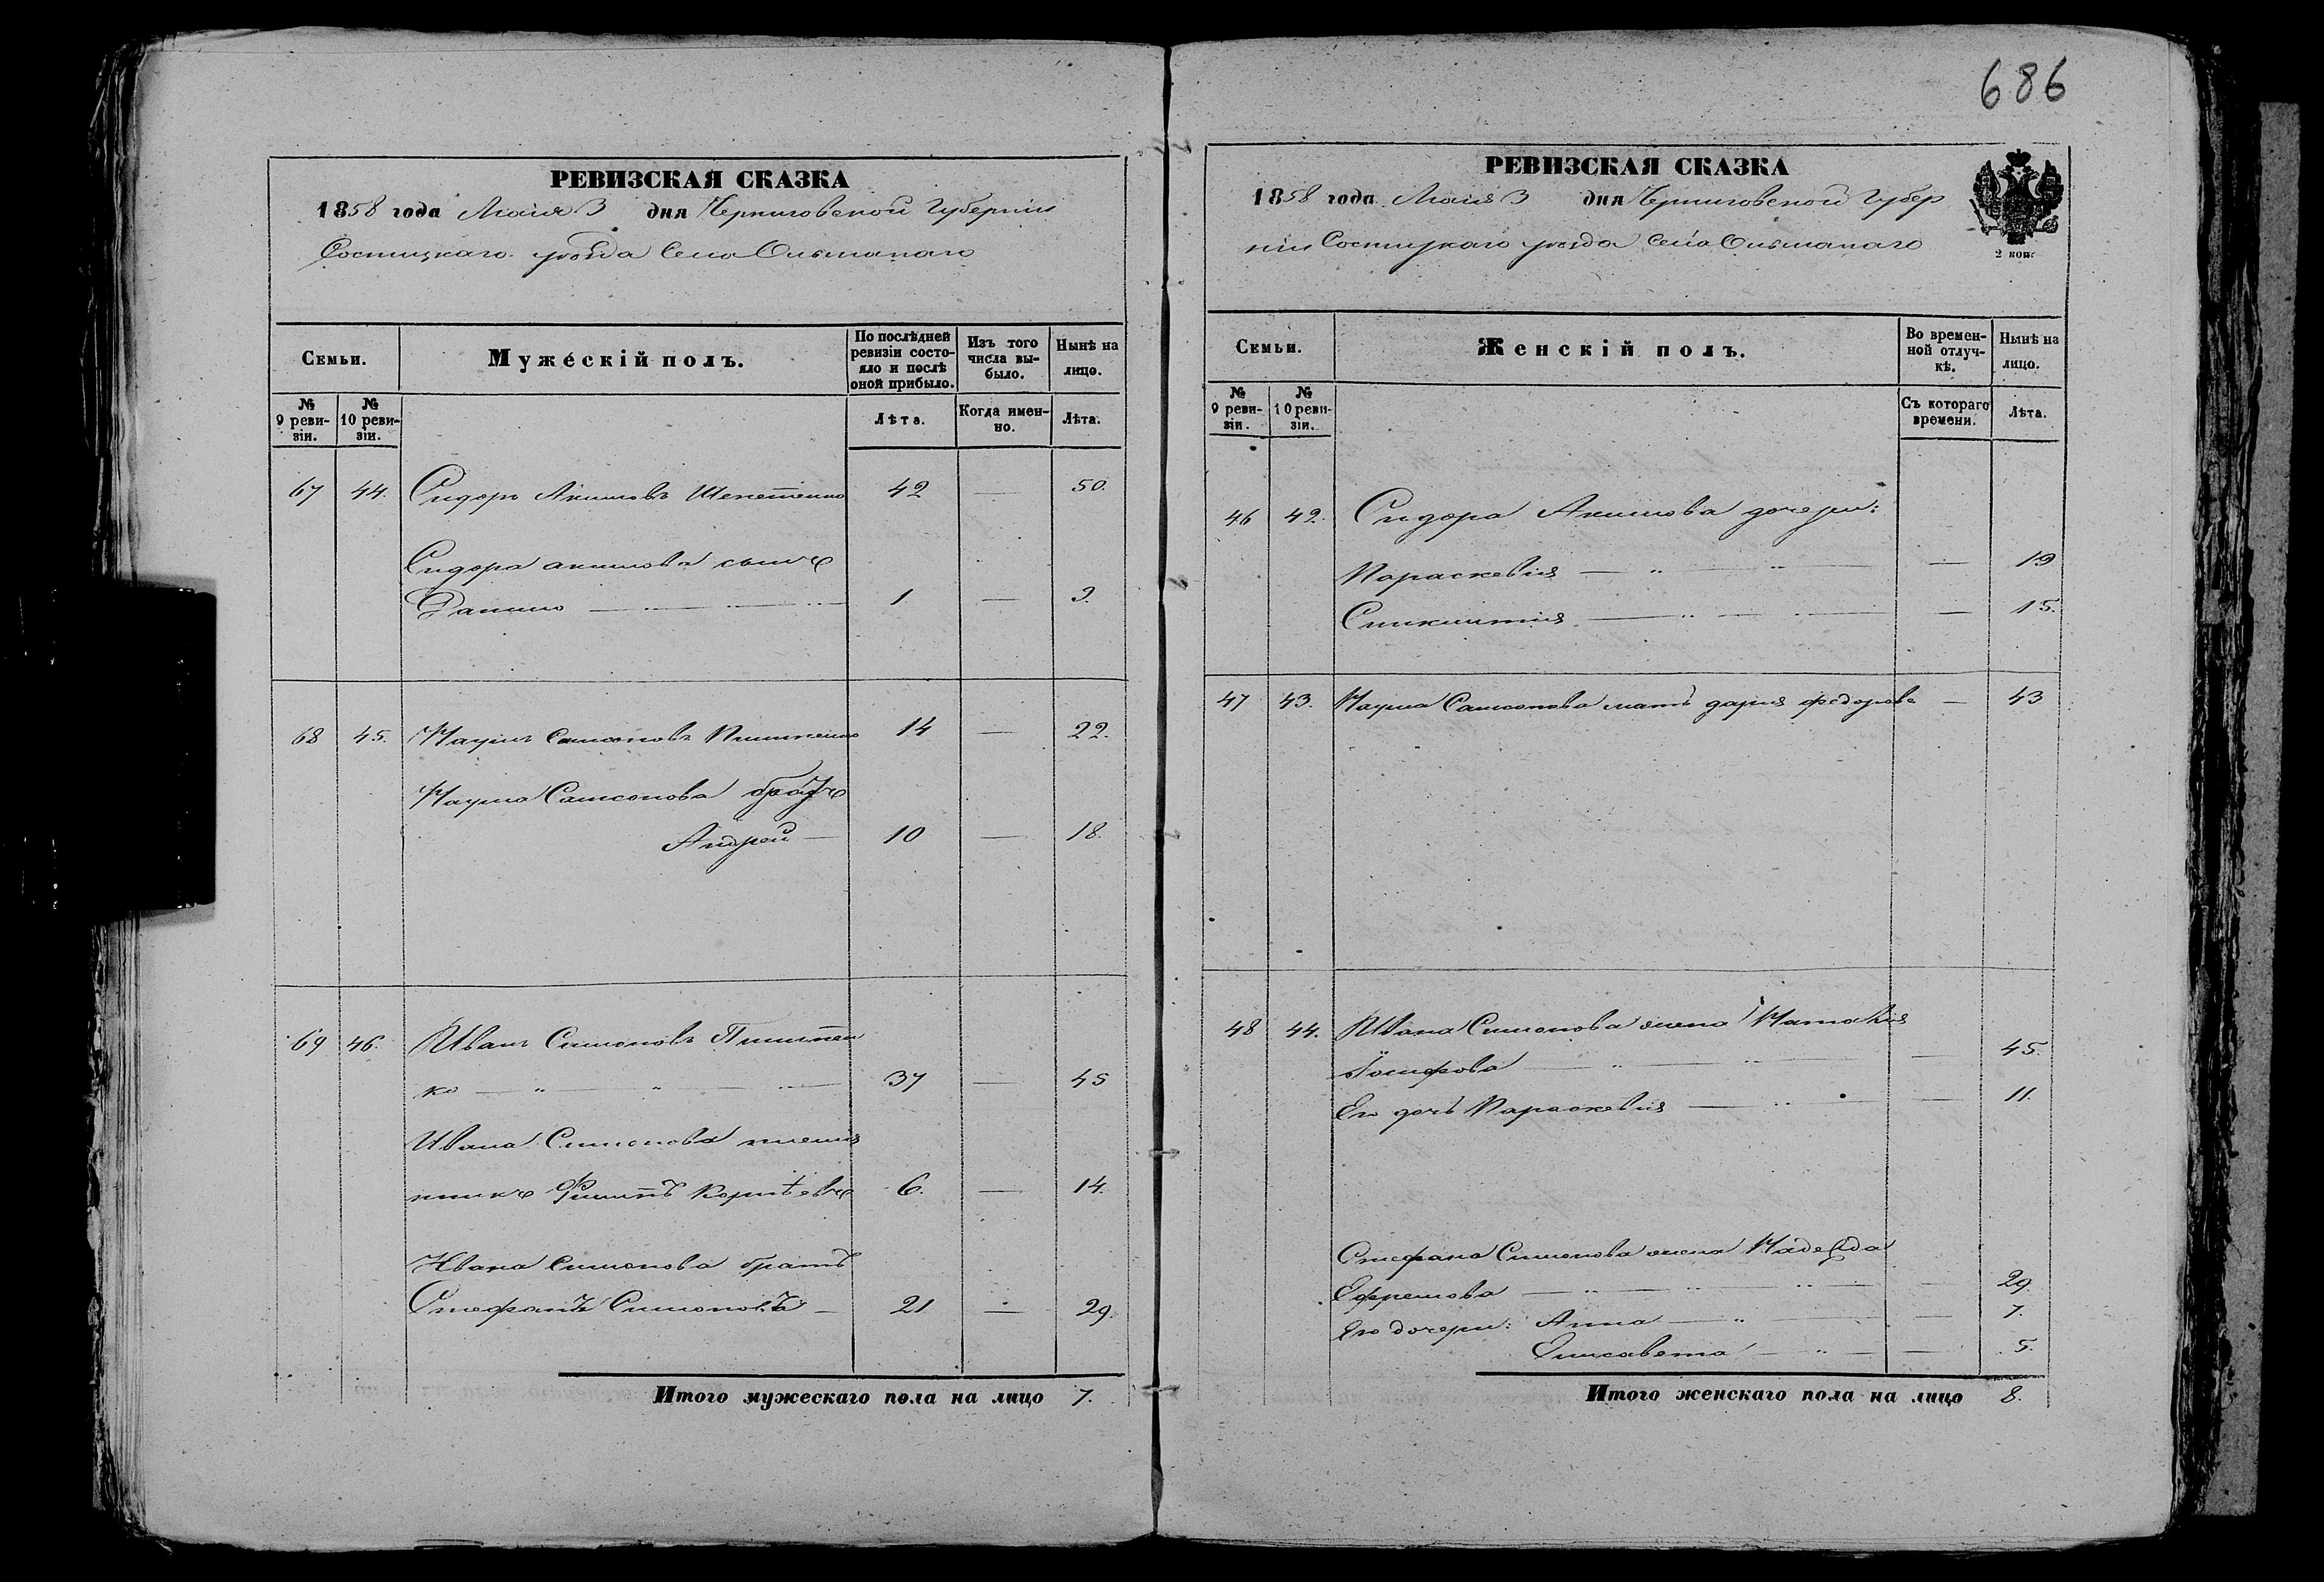 686
РЕВИЗСКАЯ СКАЗКА
1858 года Маія 3 дня Черниговской Губерніи
Сосницкаго уѣзда Села
Семьи.
Мужескій полъ.
По послѣдней ревизіи состояло и послѣ оной прибыло.
Изъ того числа выбыло.
Нынѣ на лицо.
№ 9 ревизіи.
№ 10 ревизіи.
Лѣта.
Когда именно.
Лѣта.
67 44. Сидоръ Акимовъ 42 — 50.
Сидора Акимова сынъ
Данило — 1 — 9.
68 45. Наумъ Самсоновъ 14 — 22.
Наума Самсонова братъ
Андрей — 10 — 18.
69 46. Иванъ Симоновъ Пишнен
ко — 37 — 45
Ивана Симонова племян
никъ Филипъ 6. — 14.
Ивана Симонова братъ
Стефанъ Симоновъ — 21 — 29.
Итого мужескаго пола на лицо 7.
РЕВИЗСКАЯ СКАЗКА
1858 года Маія 3 дня Черниговской Губер
ніи Сосницкаго уѣзда Села
2 коп.
Семьи.
Женскій полъ.
Во временной отлучкѣ.
Нынѣ на лицо.
№ 9 ревизіи.
№ 10 ревизіи.
Съ котораго времени.
Лѣта.
46 42. Сидора Акимова дочери:
Параскевія — — 19
— 15.
47 43. Наума Самсонова мать Дарія Федорова — 43
48 44. Ивана Симонова жена Наталія
Іосифова — — 45.
Его дочь Параскевія — — 11.
Стефана Симонова жена Надежда
Ефремова — — 29.
Его дочери: Анна — — 7.
Елисавета — — 5.
Итого женскаго пола на лицо 8.